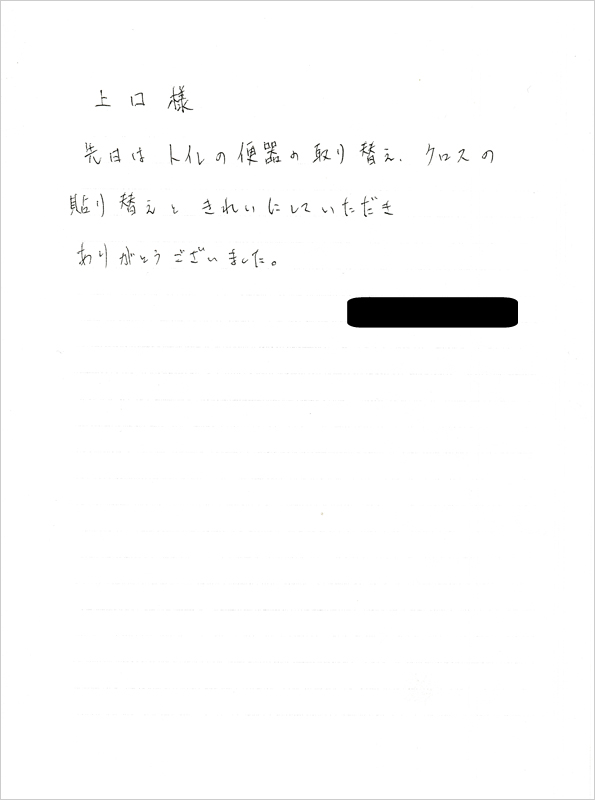 上口様
先日はトイレの便器の取り替え、クロスの
貼り替えと きれいにしていただき
ありがとうございました。